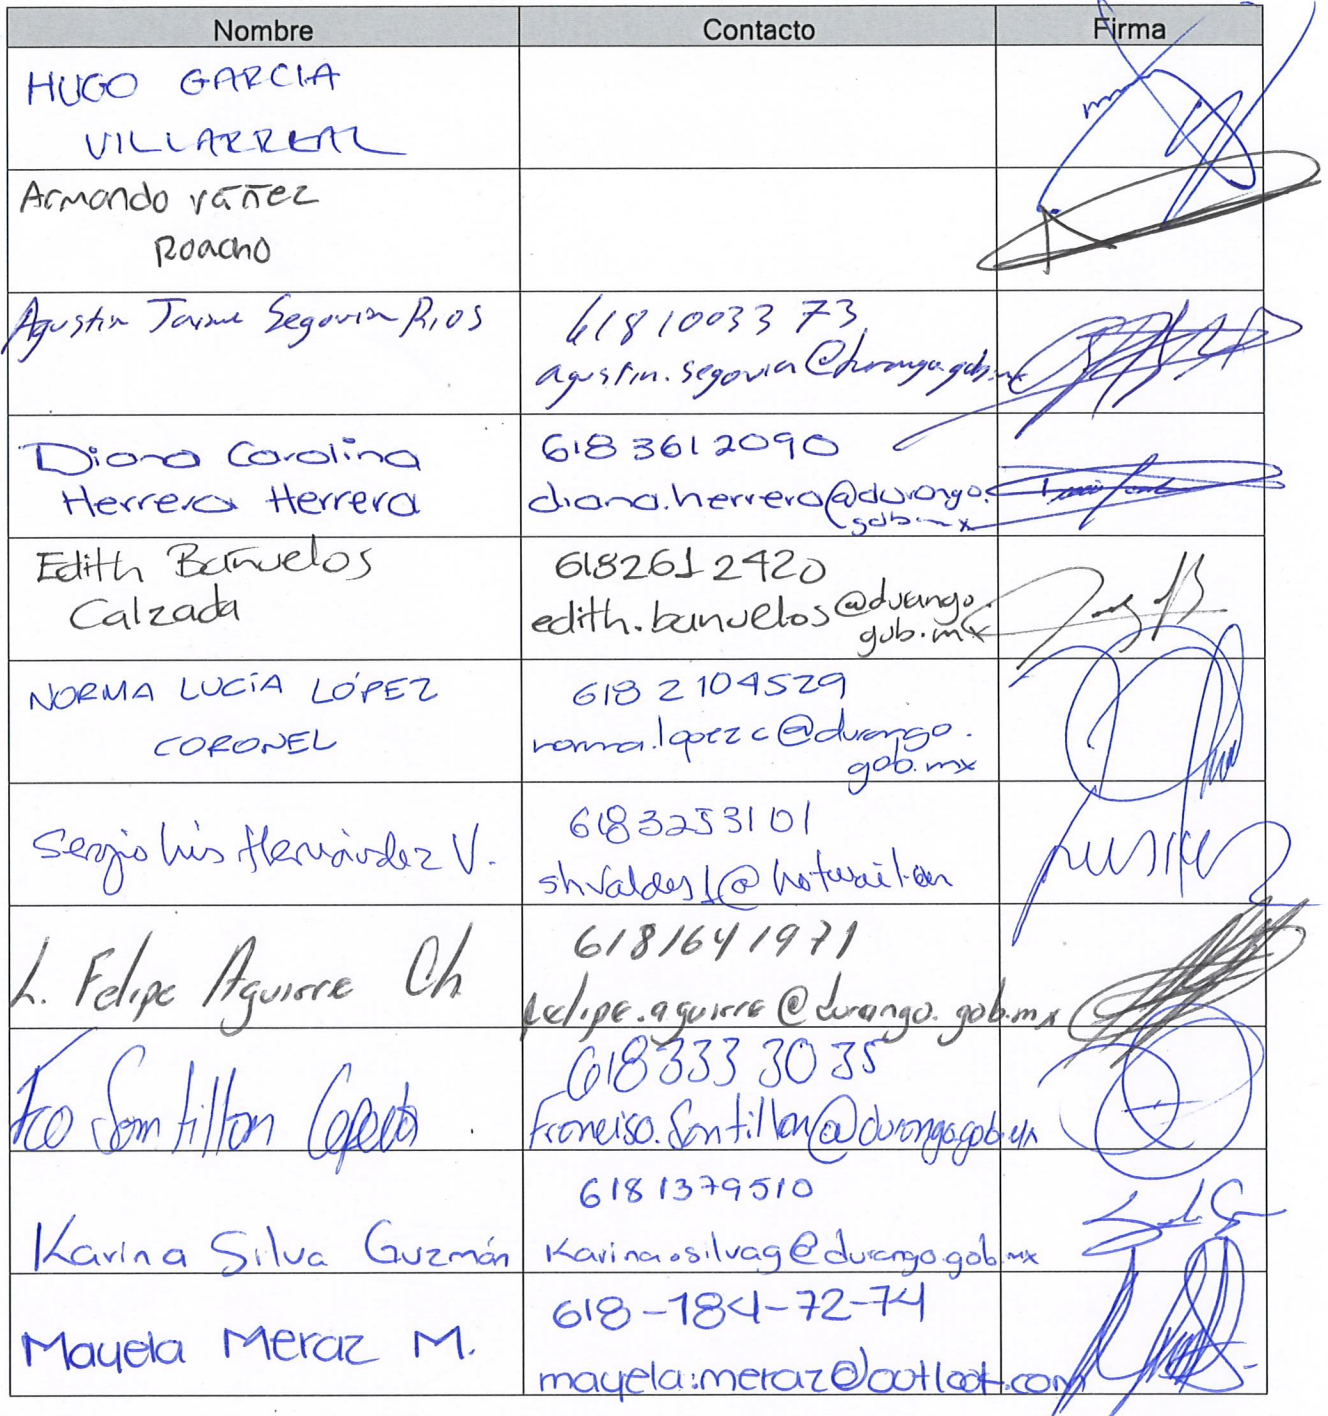 Nombre Contacto Firma
HUGO GARCIA
VILLARREAL
Armando Yáñez
Roacho
Agustin Jaime Segovia Rios
6181003373
agustin.segovia@durango.gob.mx
Diana Carolina
Herrera Herrera
618 361 2090
diana.herrera@durango.
gob.mx
Edith Bañuelos
Calzada
6182612420
edith.banuelos@durango.
gob.mx
NORMA LUCÍA LÓPEZ
CORONEL
618 2104529
norma.lopezc@durango.
gob.mx
Sergio Luis Hernández V.
6183253101
shvaldes1@hotmail.com
L. Felipe Aguirre Ch
6181641971
felipe.aguirre@durango.gob.mx
Fco Santillan Cepeda
618 333 30 35
francisco.santillan@durango.gob.mx
Karina Silva Guzmán
6181379510
Karina.silvag@durango.gob.mx
Mayela Meraz M.
618-184-72-74
mayela.meraz@outlook.com